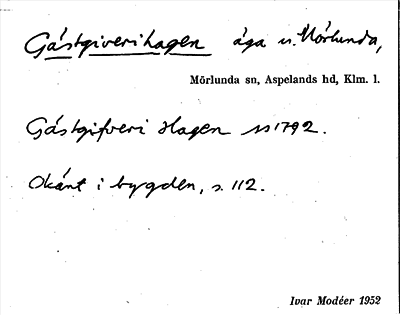 Gästgiverihagen äga u. Mörlunda,
Mörlunda sn, Aspelands hd, Klm. l.
Gästgifveri Hagen 1792.
Okänt i bygden, s. 112.
Ivar Modéer 1952